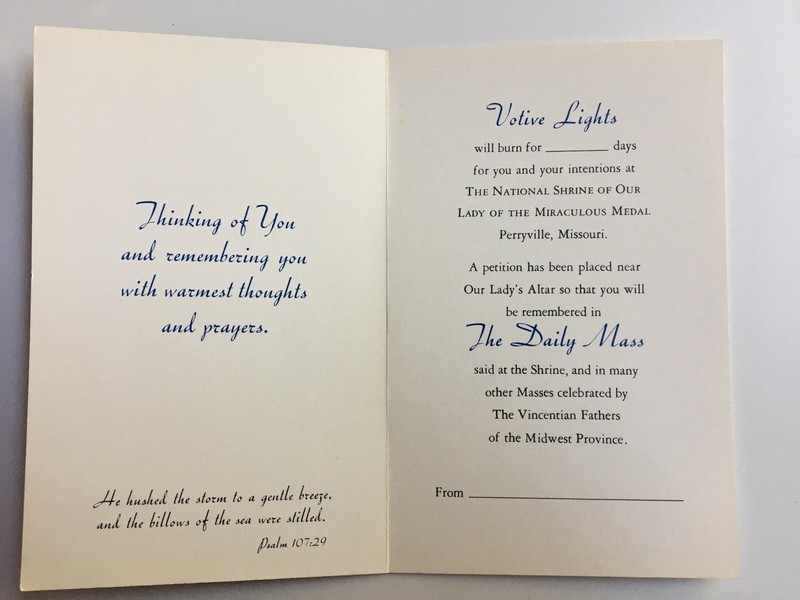 Thinking of You
and remembering you
with warmest thoughts
and prayers.
He hushed the storm to a gentle breeze,
and the billows of the sea were stilled.
Psalm 107:29
Votive Lights
will burn for ________ days
for you and your intentions at
THE NATIONAL SHRINE OF OUR
LADY OF THE MIRACULOUS MEDAL
Perryville, Missouri.
A petition has been placed near
Our Lady's Altar so that you will
be remembered in
The Daily Mass
said at the Shrine, and in many
other Masses celebrated by
The Vincentian Fathers
of the Midwest Province.
From ________________________